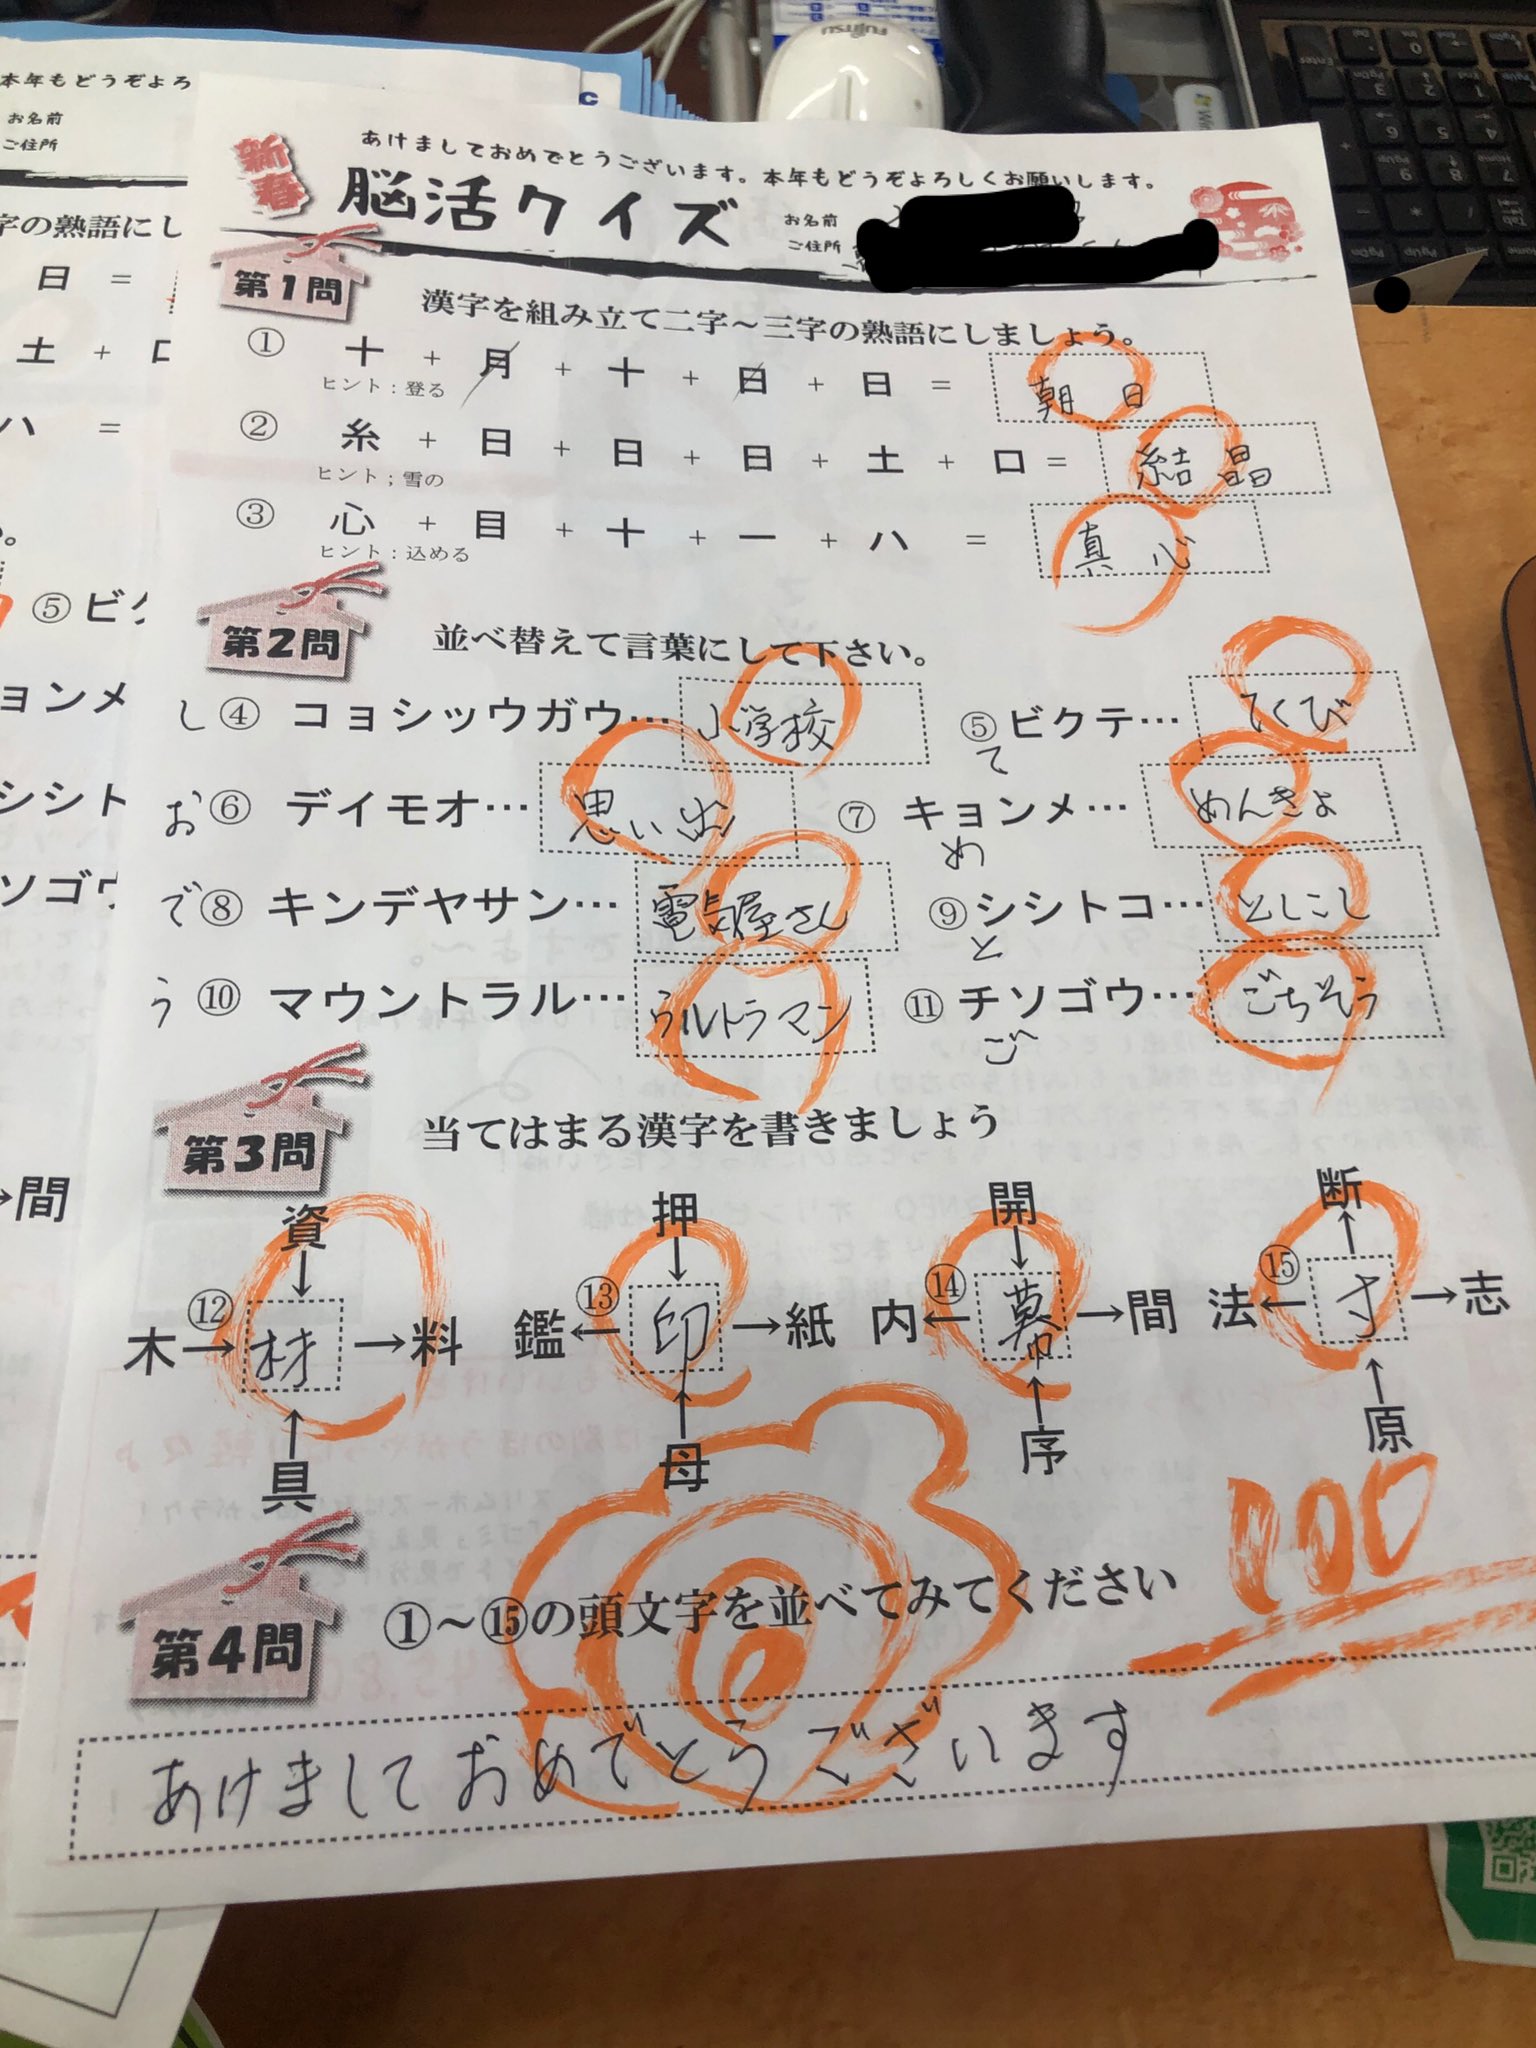 FUJITSU
本年もどうぞよろ
お名前
ご住所
新春
あけましておめでとうございます。本年もどうぞよろしくお願いします。
脳活クイズ
お名前
ご住所
第1問
漢字を組み立て二字～三字の熟語にしましょう。
① 十 + 月 + 十 + 日 + 日 = 朝日
ヒント：登る
② 糸 + 日 + 日 + 日 + 土 + 口 = 結晶
ヒント；雪の
③ 心 + 目 + 十 + 一 + ハ = 真心
ヒント：込める
第2問
並べ替えて言葉にして下さい。
し ④ コョシッウガウ… 小学校
⑤ ビクテ… てくび
て
お ⑥ デイモオ… 思い出
⑦ キョンメ… めんきょ
め
で ⑧ キンデヤサン… 電気屋さん
⑨ シシトコ… としこし
と
う ⑩ マウントラル… ウルトラマン
⑪ チソゴウ… ごちそう
ご
第3問
当てはまる漢字を書きましょう
資
木→ ⑫ 材 →料
具
押
鑑← ⑬ 印 →紙
母
開
内← ⑭ 幕 →間
序
断
法← ⑮ 寸 →志
原
100
第4問
①～⑮の頭文字を並べてみてください
あけましておめでとうございます
字の熟語にし
日 =
土 +
ハ =
⑤ ビク
ョンメ
シシト
ソゴウ
→間